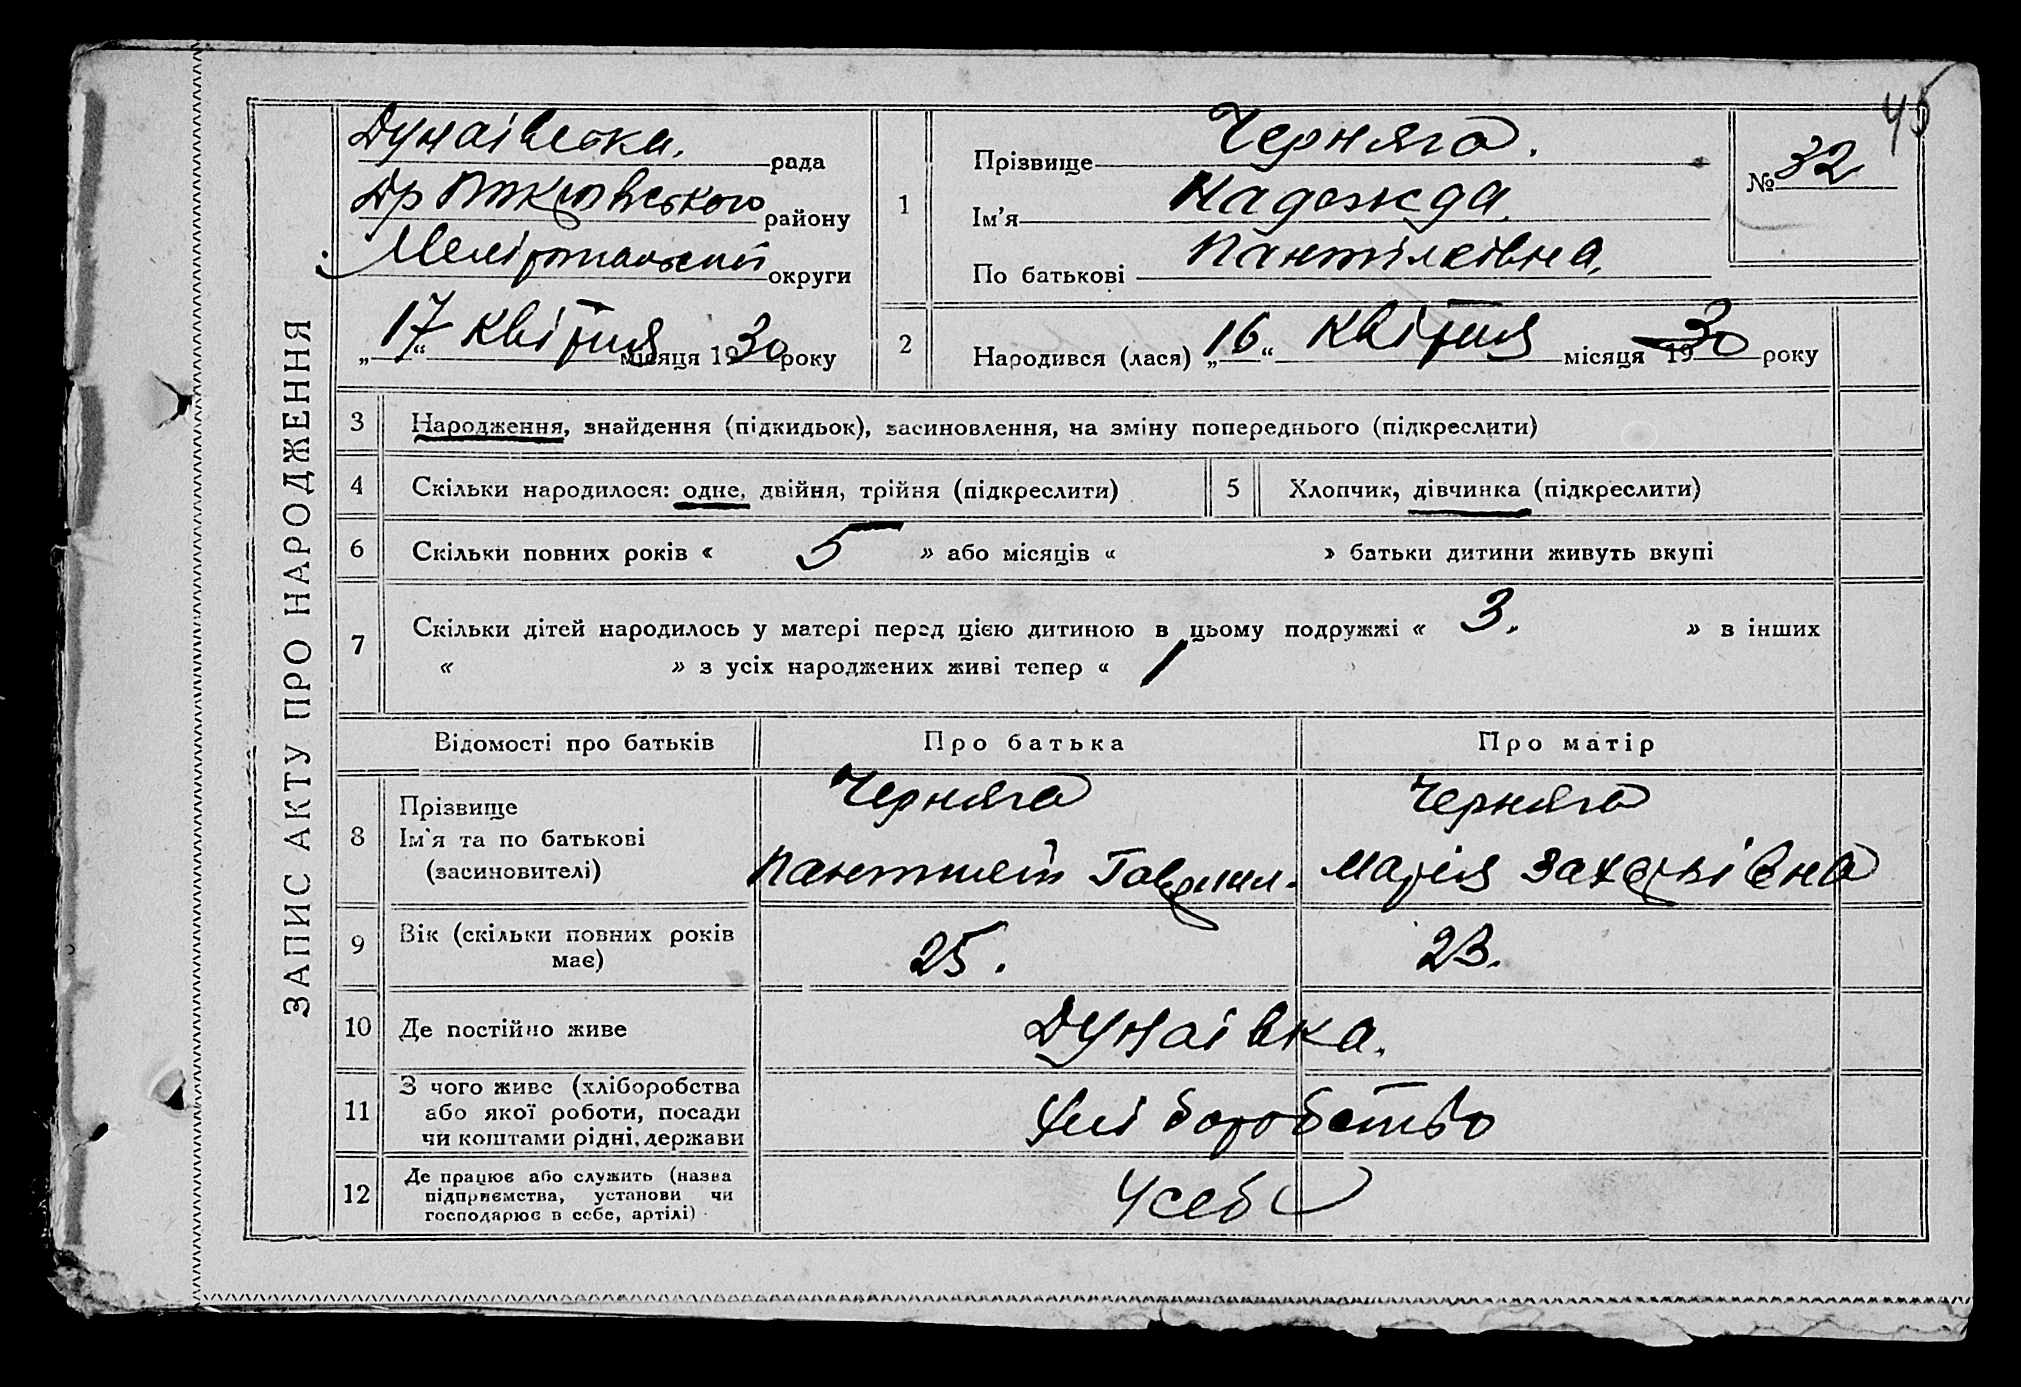 45
ЗАПИС АКТУ ПРО НАРОДЖЕННЯ
Дунаівська. рада
району
Меліпольської округи
„17“ квітня місяця 1930 року
1
Прізвище Черняга.
Ім’я Надежда
По батькові Пантілеівна.
№ 32
2
Народився (лася) „16“ квітня місяця 1930 року
3 Народження, знайдення (підкидьок), засиновлення, на зміну попереднього (підкреслити)
4 Скільки народилося: одне, двійня, трійня (підкреслити) 5 Хлопчик, дівчинка (підкреслити)
6 Скільки повних років « 5 » або місяців « » батьки дитини живуть вкупі
7 Скільки дітей народилось у матері перед цією дитиною в цьому подружжі « 3. » в інших
« » з усіх народжених живі тепер « 1
Відомості про батьків Про батька Про матір
8 Прізвище
Ім'я та по батькові
(засиновителі)
Черняга
Пантилей Гаврил.
Черняга
Марія Захарьівна
9 Вік (скільки повних років
має)
25. 23.
10 Де постійно живе Дунаівка.
11 З чого живе (хліборобства
або якої роботи, посади
чи коштами рідні, держави
Хліборобство
12 Де працює або служить (назва
підприємства, установи чи
господарює в себе, артілі)
У себе